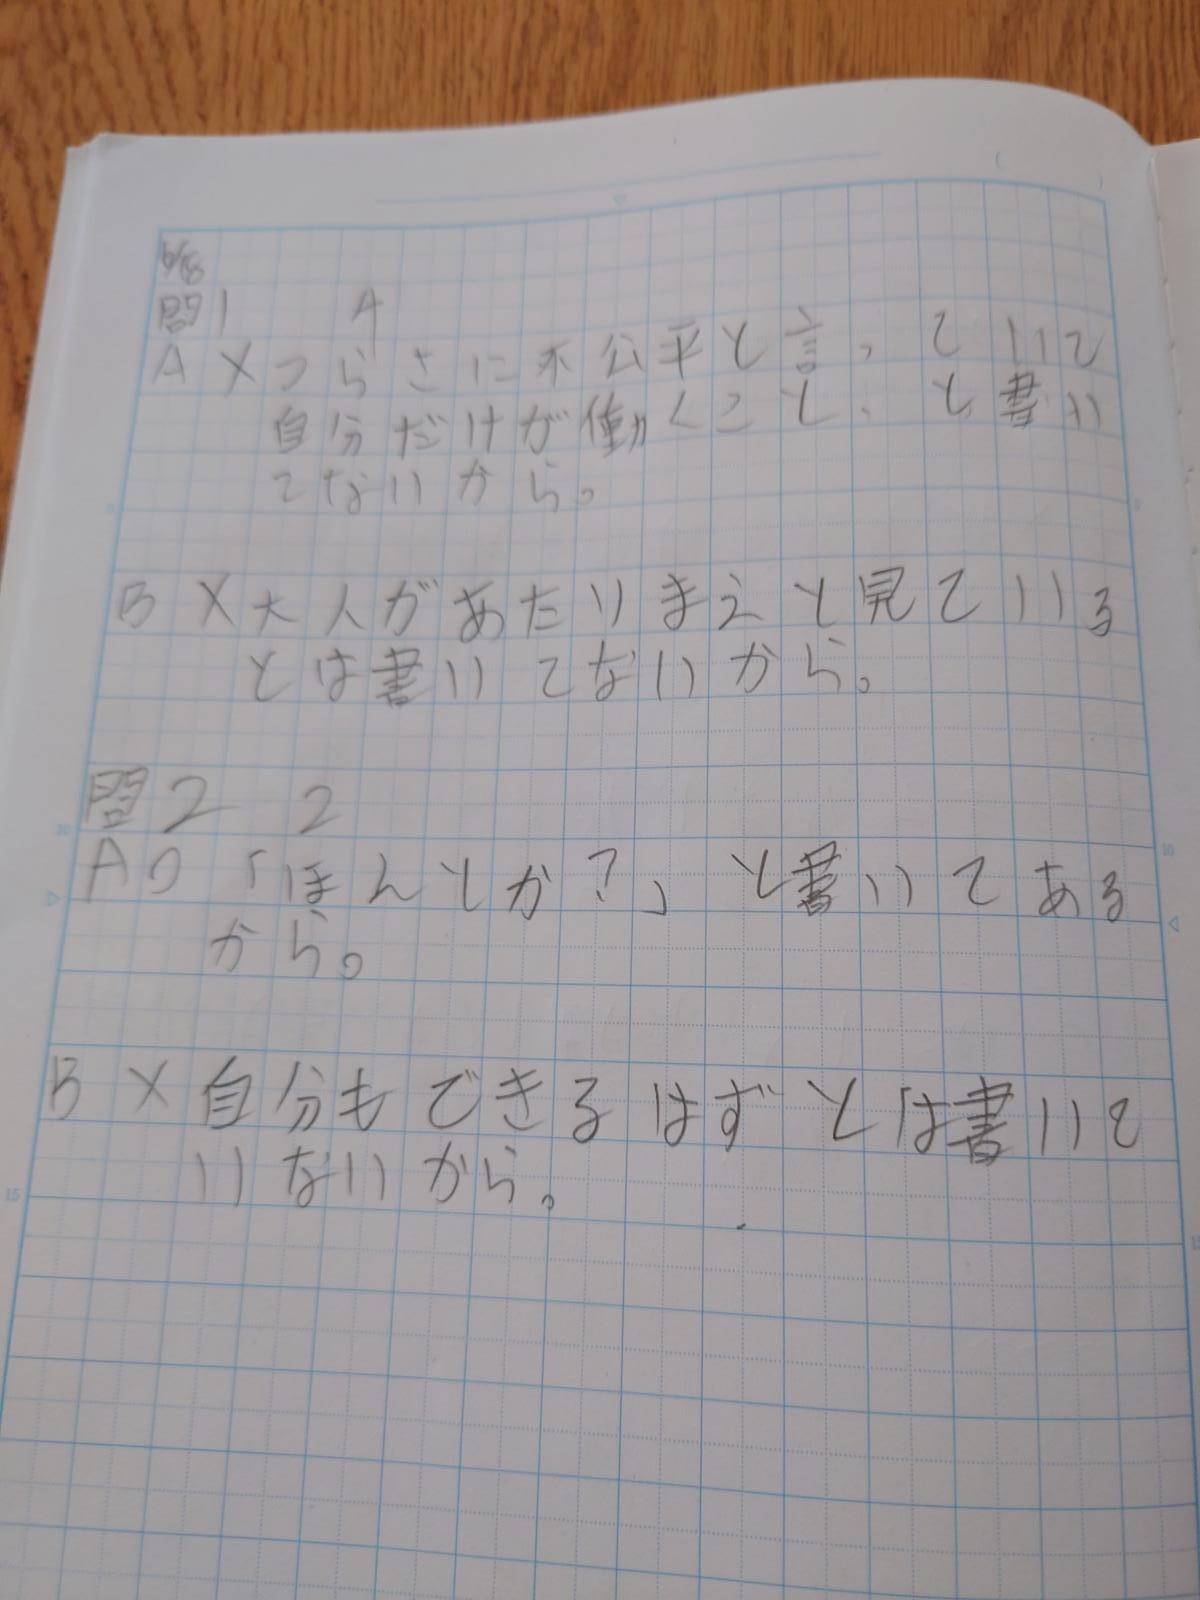 6/18
問1 4
A X つらさに不公平と言っていて
自分だけが働くこと、と書い
てないから。
B X 大人があたりまえと見ている
とは書いてないから。
問2 2
A O 「ほんとか?」と書いてある
から。
B X 自分もできるはずとは書いて
いないから。
10
15
10